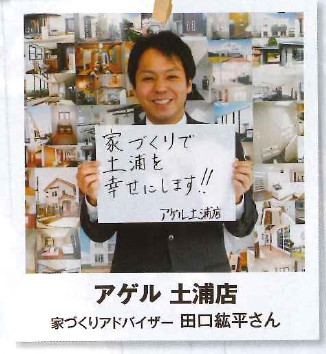 家づくりで
土浦を
幸せにします!!
アゲル土浦店
アゲル 土浦店
家づくりアドバイザー 田口紘平さん